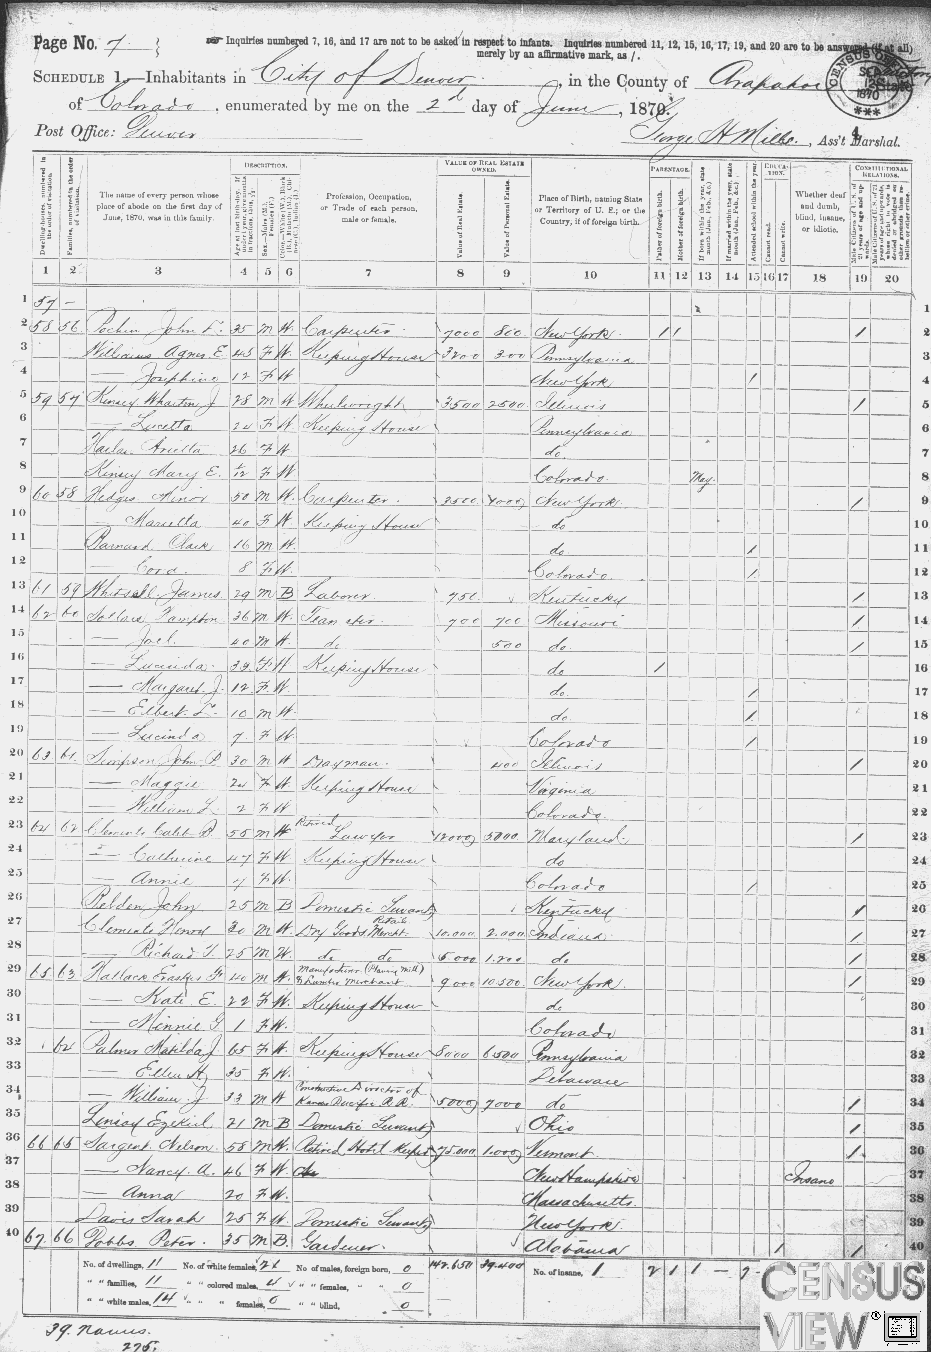 Page No. 7
☞ Inquiries numbered 7, 16, and 17 are not to be asked in respect to infants. Inquiries numbered 11, 12, 15, 16, 17, 19, and 20 are to be answered (if at all)
merely by an affirmative mark, as /.
SCHEDULE 1.—Inhabitants in City of Denver, in the County of Arapahoe
of Colorado, enumerated by me on the 2d day of June, 1870.
CENSUS OFFICE 1870
State
Post Office: Denver
George H Mills, Ass't Marshal.
DESCRIPTION. VALUE OF REAL ESTATE OWNED. PARENTAGE. EDUCATION. CONSTITUTIONAL RELATIONS.
Dwelling-houses, numbered in the order of visitation.
Families, numbered in the order of visitation.
The name of every person whose place of abode on the first day of June, 1870, was in this family.
Profession, Occupation, or Trade of each person, male or female.
Value of Real Estate.
Value of Personal Estate.
Place of Birth, naming State or Territory of U. S.; or the Country, if of foreign birth.
Father of foreign birth.
Mother of foreign birth.
Attended school within the year.
Cannot read.
Cannot write.
Whether deaf and dumb, blind, insane, or idiotic.
1 2 3 4 5 6 7 8 9 10 11 12 13 14 15 16 17 18 19 20
1 57 — 1
2 58 56 John 35 M W Carpenter 7000 800 New York / / / 2
3 Williams Agnes E. 45 F W Keeping House 3200 300 Pennsylvania 3
4 — Josephine 12 F W New York / 4
5 59 57 Kinsey Wharton J 28 M W Wheelwright 3500 2500 Illinois / 5
6 — Luretta 24 F W Keeping House Pennsylvania 6
7 26 F W do 7
8 Kinsey Mary E. F W Colorado May 8
9 60 58 Hedges Minor 50 M W Carpenter New York / 9
10 — Marietta 40 F W Keeping House do 10
11 Barnard Clark 16 M W do / 11
12 — Cora 8 F W Colorado / 12
13 61 59 James 29 M B Laborer 750 Kentucky / 13
14 62 60 36 M W Teamster 700 700 Missouri / 14
15 — Joel 40 M W do 500 do / 15
16 — Lucinda 39 F W Keeping House do / 16
17 — Margaret J. 12 F W do / 17
18 — Elbert 10 M W do / 18
19 — Lucinda 7 F W Colorado / 19
20 63 61 Simpson John P. 30 M W Drayman 400 Illinois / 20
21 — Maggie 24 F W Keeping House Virginia 21
22 — William L. 2 F W Colorado 22
23 64 62 Clements Caleb B. 55 M W Retired Lawyer 12000 5000 Maryland / 23
24 — Catherine 47 F W Keeping House do 24
25 — Annie 7 F W Colorado / 25
26 John 25 M B Domestic Servant Kentucky / 26
27 Clements 30 M W Dry Goods Retail Mercht. 10.000 2.000 Indiana / 27
28 — Richard 25 M W do do 6000 1.200 do / 28
29 65 63 Wallace 40 M W Manufacturer (Planing Mill) & Lumber Merchant 9000 10.500 New York / 29
30 — Kate E. 22 F W Keeping House do 30
31 — Minnie G 1 F W Colorado 31
32 64 Palmer Matilda J 65 F W Keeping House 8000 6500 Pennsylvania 32
33 — Ellen H 35 F W Delaware 33
34 — William J 33 M W Constructive Director of Kansas Pacific R.R. 5000 7000 do / 34
35 Ezekiel 21 M B Domestic Servant Ohio / 35
36 66 65 Sargent Nelson 58 M W Retired Hotel Keeper 75.000 1.000 Vermont / 36
37 — Nancy A. 46 F W New Hampshire Insane 37
38 — Anna 20 F W Massachusetts 38
39 Davis Sarah 25 F W Domestic Servant New York 39
40 67 66 Dobbs Peter 35 M B Gardener Alabama / / 40
No. of dwellings, 11 No. of white females, 21 No. of males, foreign born, 0 142.650 39.400 No. of insane, 1 2 1 1 –
" " families, 11 " " colored males, 4 " " females, " " 0
" " white males, 14 " " " females, 0 " " blind, 0
39. Names.
275.
CENSUS
VIEW